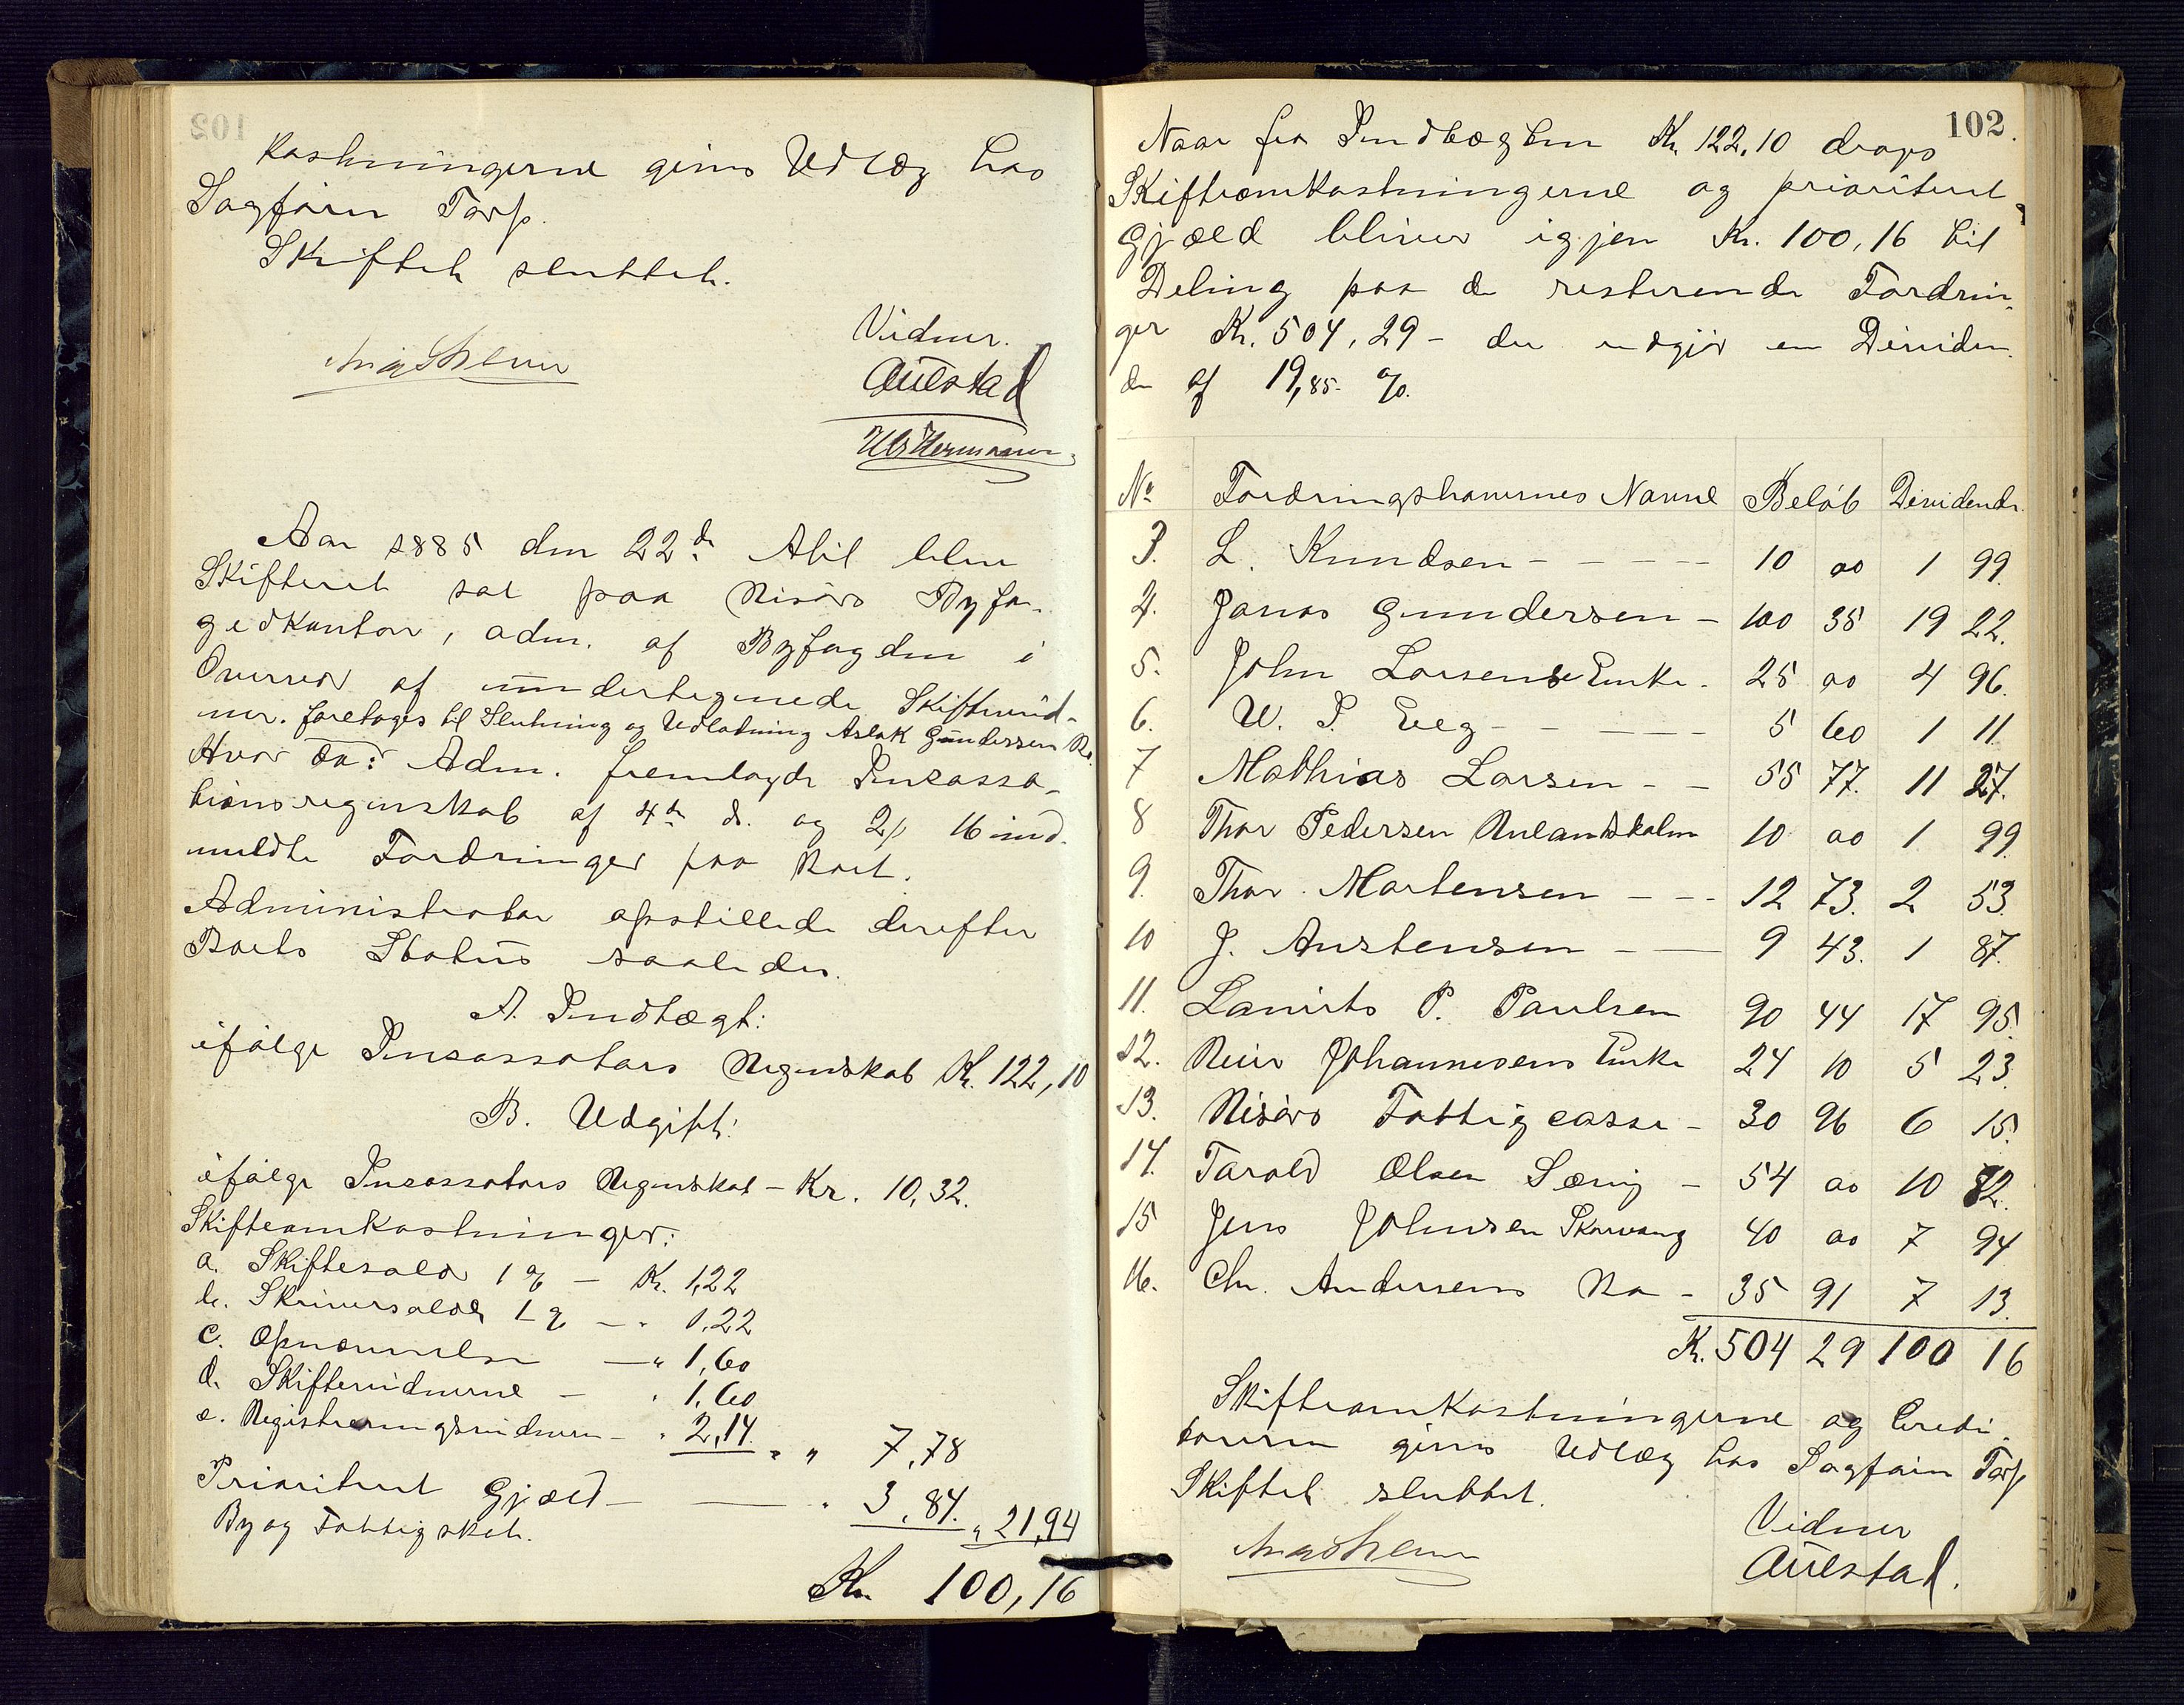 102
kostningerne gives Udlæg hos
Sagfører Torp.
Skiftet sluttet.
Vidner.
Auestad
Aar 1885 den 22de April blev
Skifteret sat paa Risørs Byfo-
gedkontor, adm. af Byfogden i
Overvær af undertegnede Skiftevid-
ner. foretoges til Slutning og Udlodning Aslak Gundersen Bo.
Hvor da: Adm. fremlagde Incassa-
tionsregnskab af 4de ds. og 2/1 16 ind-
meldte Fordringer paa Boet.
Administrator opstillede derefter
Boets Status saaledes.
A. Indtægt:
ifølge Incassators Regnskab Kr. 122,10
B. Udgift:
ifølge Incassators Regnskab - Kr. 10,32.
Skifteomkostninger:
a. Skiftesalær 1 % - Kr. 1,22
b. Skriversalær 1 % - " 1,22
c. Opnævnelse - " 1,60
d. Skiftevidnerne - " 1,60
e. Registreringsvidnern - " 2,14. " " 7,78
Prioriteret Gjæld - " 3,84. " 21,94
By og Fattigskat.
Kr. 100,16
102.
Naar fra Indtægten Kr. 122,10 drages
Skifteomkostningerne og prioriteret
Gjæld bliver igjen Kr. 100,16 til
Deling paa de resterende Fordrin-
ger Kr. 504,29 - der udgjør en Dividen-
de af 19,85 %.
No Fordringshavernes Navne Beløb Dividende
3. L. Knudsen - 10 00 1 99.
4. Jonas Gundersen - 100 35 19 22.
5. John Larsens Enke - 25 00 4 96.
6. W. P. Eeg - 5 60 1 11.
7 Mathias Larsen - 55 77. 11 27.
8 Thor Pedersen Urlandsholm 10 00 1 99
9. Thor Mortensen - 12 73. 2 53
10 J. Austensen - 9 43. 1 87.
11. Laurits P. Paulsen 90 44 17 95.
12. Reier Johannesens Enke 24 10 5 23.
13. Risørs Fattigcasse - 30 96 6 15.
14. Tarald Olsen Sæving - 54 00 10 72.
15 Jens Johnsen Skarvang 40 00 7 94
16. Chr. Andersens Bo - 35 91 7 13.
Kr. 504 29 100 16
Skifteomkostningerne og Credi-
torerne gives Udlæg hos Sagfører Torp
Skiftet sluttet.
Vidner
Auestad.